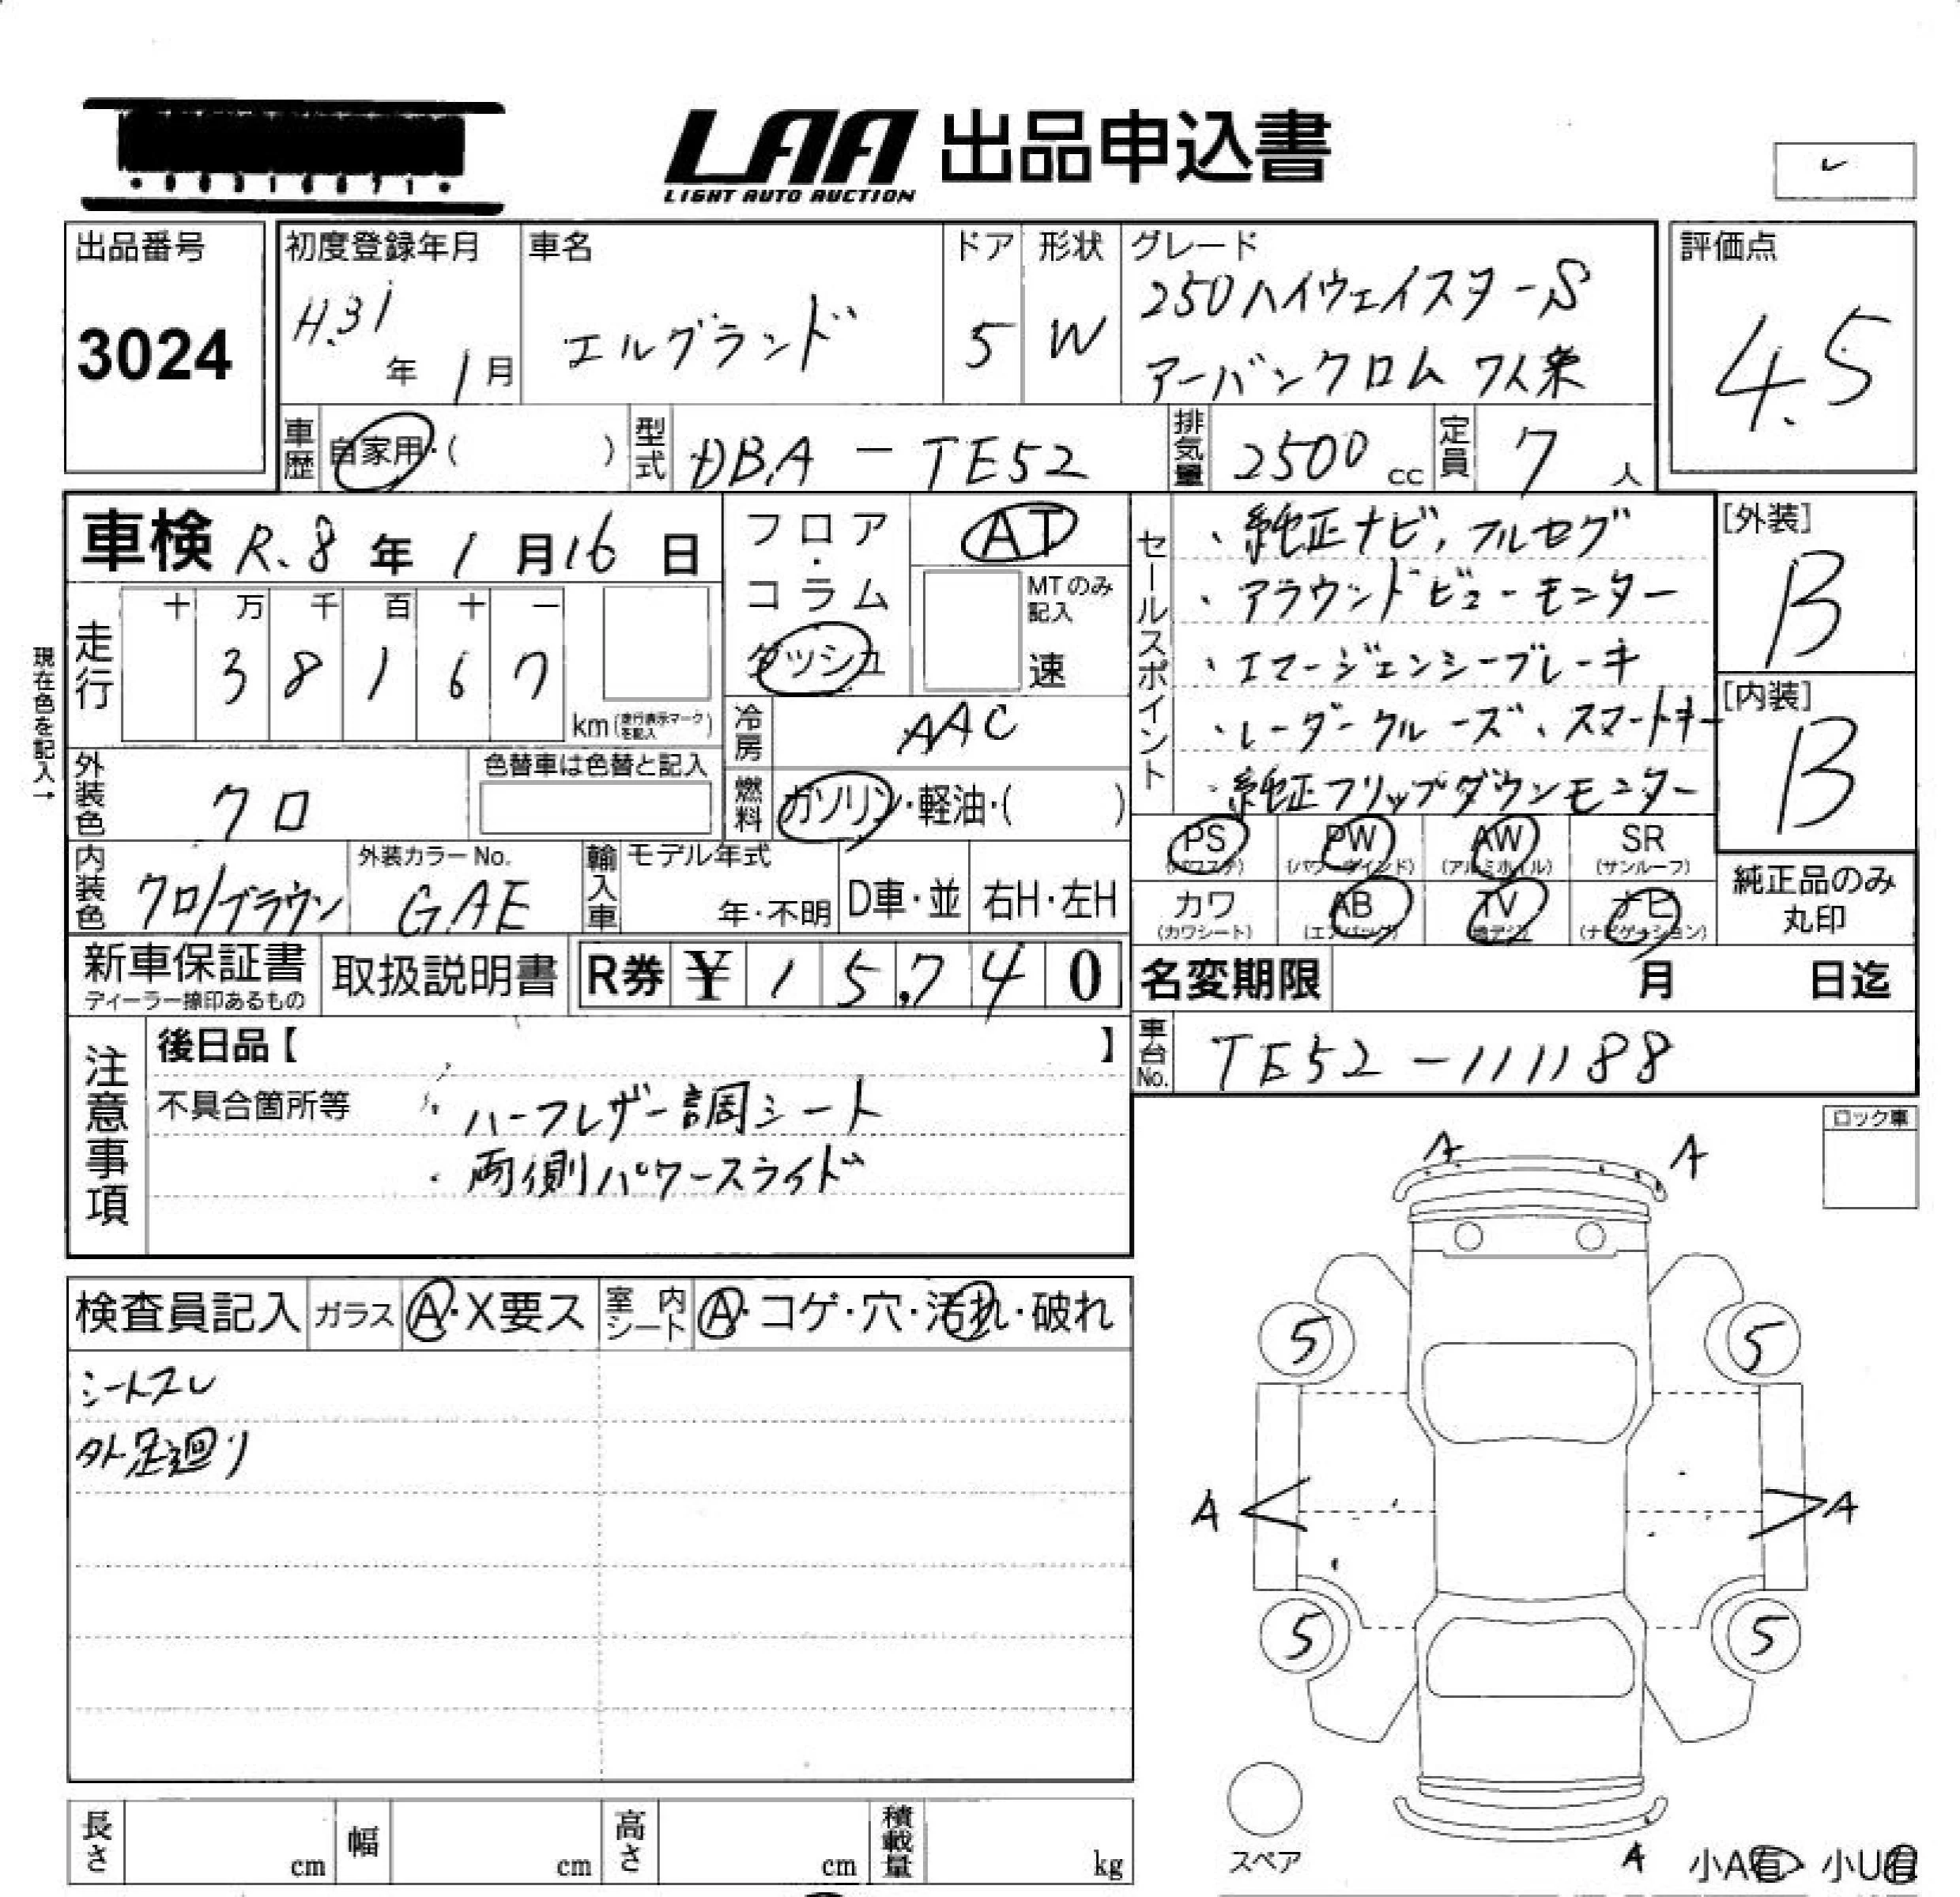 LAA 出品申込書
LIGHT AUTO AUCTION
出品番号
3024
初度登録年月
H.31年 1月
車名
エルグランド
ドア
5
形状
W
グレード
250ハイウェイスターS
アーバンクロム 7人乗
評価点
4.5
車歴
自家用・( )
型式
DBA-TE52
排気量
2500cc
定員
7人
車検 R.8年 1月16日
走行
十 万 千 百 十 一
3 8 1 6 7
km(走行表示マークを記入)
現在色を記入→
フロア・コラム
ダッシュ
AT
MTのみ記入
速
冷房
AAC
燃料
ガソリン・軽油・( )
外装色
クロ
色替車は色替と記入
内装色
クロ/ブラウン
外装カラーNo.
GAE
輸入車
モデル年式
年・不明
D車・並
右H・左H
セールスポイント
・純正ナビ,フルセグ
・アラウンドビューモニター
・エマージェンシーブレーキ
・レーダークルーズ、スマートキー
・純正フリップダウンモニター
[外装]
B
[内装]
B
PS (パワステ)
PW (パワーウインド)
AW (アルミホイル)
SR (サンルーフ)
カワ (カワシート)
AB (エアバッグ)
TV (地デジ)
ナビ (ナビゲーション)
純正品のみ丸印
新車保証書
ディーラー捺印あるもの
取扱説明書
R券 ¥15,740
名変期限 月 日迄
車台No.
TE52-111188
注意事項
後日品【 】
不具合箇所等
・ハーフレザー調シート
・両側パワースライド
ロック車
検査員記入
ガラス A・X要ス
室内シート A・コゲ・穴・汚れ・破れ
シートスレ
外足廻り
A A
5 5
A A
5 5
スペア
A
小A有 小U有
長さ cm
幅 cm
高さ cm
積載量 kg